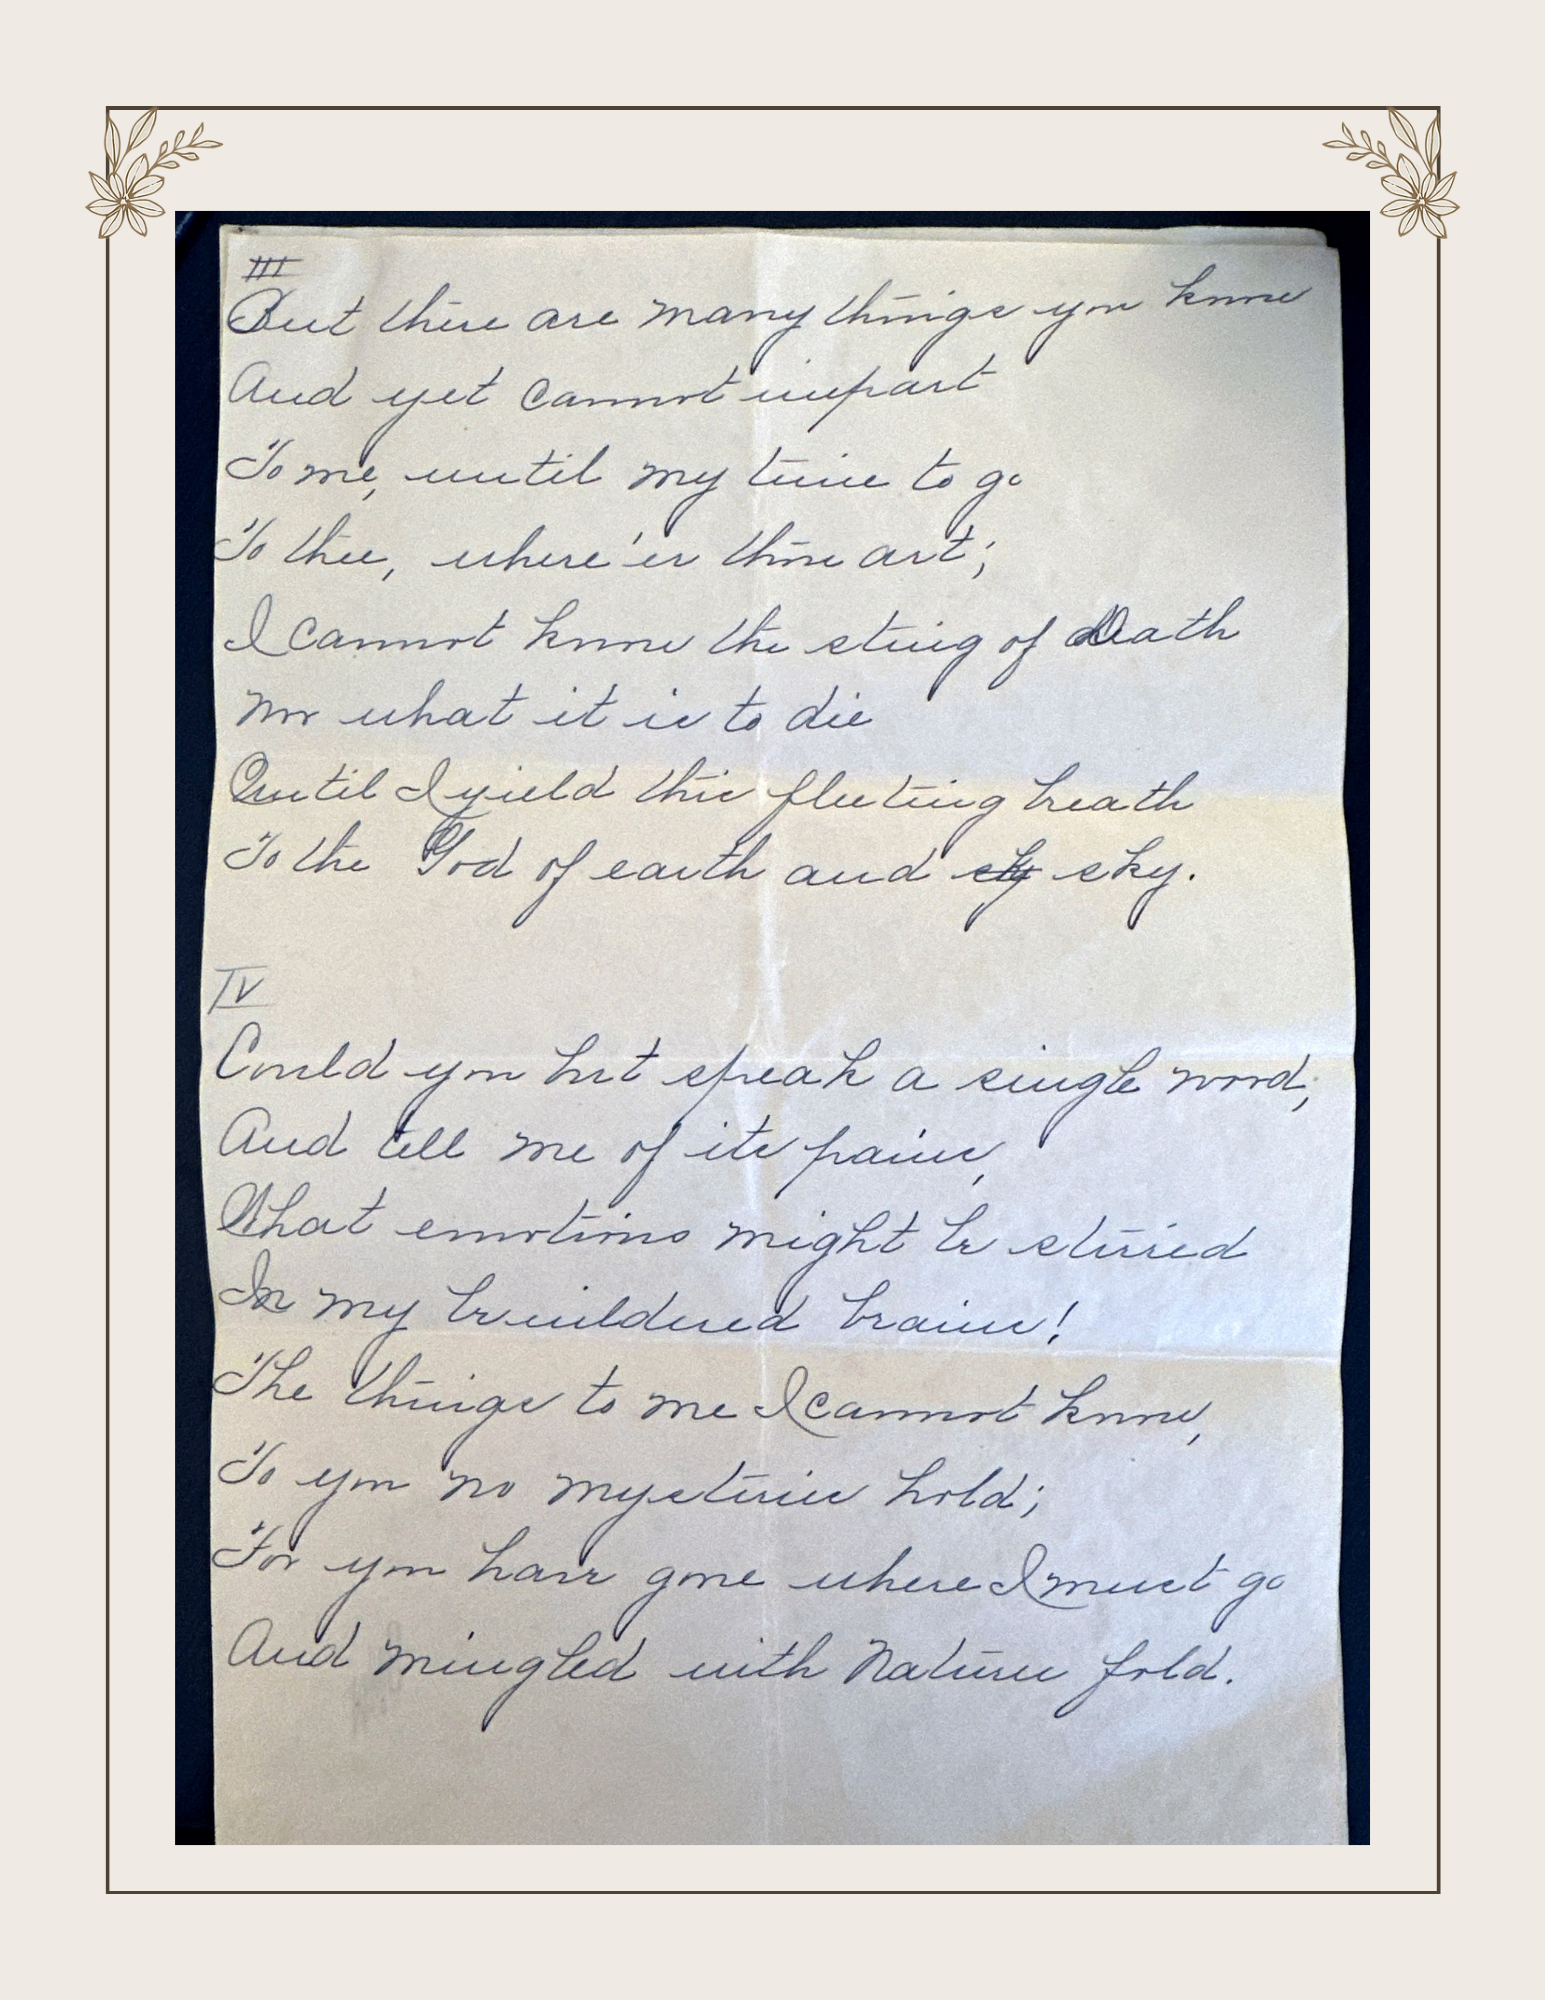 III
But there are many things you know
And yet cannot impart
To me, until my time to go
To thee, where'er thou art;
I cannot know the sting of Death
Nor what it is to die
Until I yield this fleeting breath
To the God of earth and sky sky.
IV
Could you but speak a single word,
And tell me of its pains,
What emotions might be stirred
In my bewildered brains!
The things to me I cannot know,
To you no mysteries hold;
For you have gone where I must go
And mingled with Natures fold.